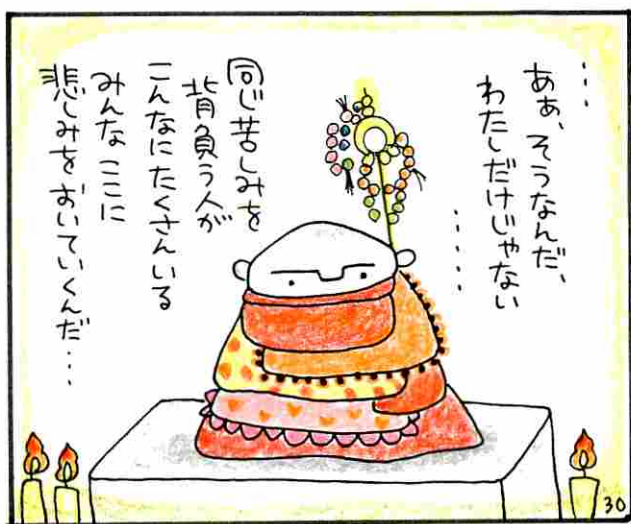 ・・・
あぁ、そうなんだ、
わたしだけじゃない
・・・・・
同じ苦しみを
背負う人が
こんなにたくさんいる
みんなここに
悲しみをおいていくんだ・・・
30